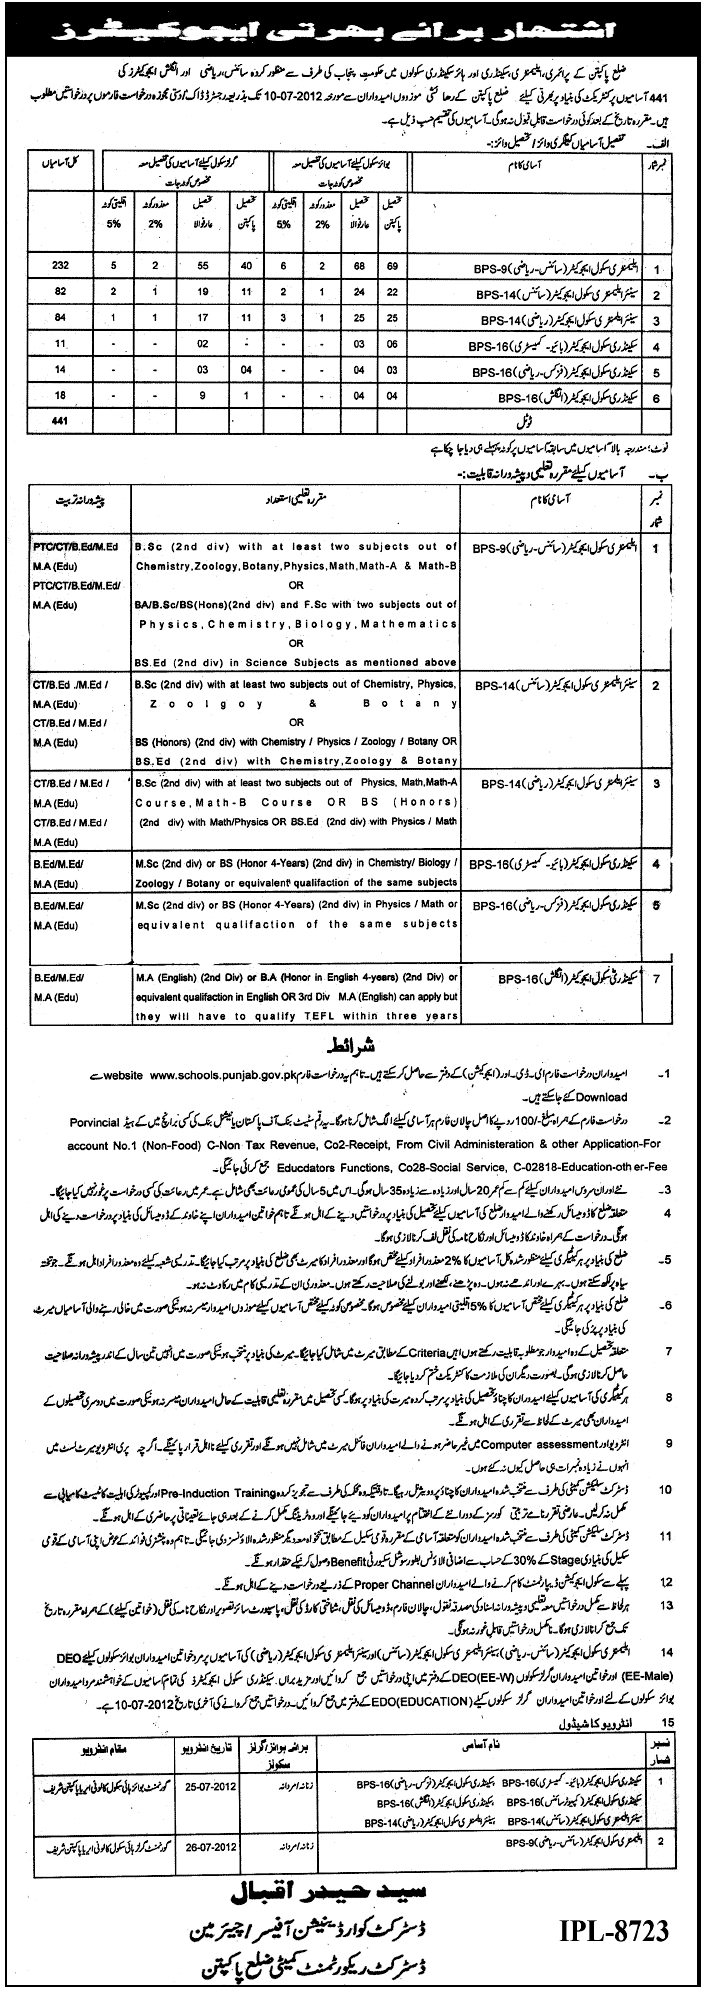 اشتہار برائے بھرتی ایجوکیٹرز
ضلع پاکپتن کے پرائمری، ایلیمنٹری، سیکنڈری اور ہائر سیکنڈری سکولوں میں حکومت پنجاب کی طرف سے منظور کردہ سائنس، ریاضی اور انگلش ایجوکیٹرز کی
441 آسامیوں پر کنٹریکٹ کی بنیاد پر بھرتی کیلئے ضلع پاکپتن کے رہائشی موزوں امیدواران سے مورخہ 10-07-2012 تک بذریعہ رجسٹرڈ ڈاک/دستی مجوزہ درخواست فارموں پر درخواستیں مطلوب
ہیں۔ مقررہ تاریخ کے بعد کوئی درخواست قابل قبول نہ ہوگی۔ آسامیوں کی تقسیم حسب ذیل ہے۔
الف۔ تفصیل آسامیاں کیٹگری وائز/ تحصیل وائز:-
نمبر شمار آسامی کا نام بوائز سکول کیلئے آسامیوں کی تفصیل معہ مخصوص کوٹہ جات گرلز سکول کیلئے آسامیوں کی تفصیل معہ مخصوص کوٹہ جات کل آسامیاں
تحصیل پاکپتن تحصیل عارفوالا معذور کوٹہ 2% اقلیتی کوٹہ 5% تحصیل پاکپتن تحصیل عارفوالا معذور کوٹہ 2% اقلیتی کوٹہ 5%
1 ایلیمنٹری سکول ایجوکیٹر (سائنس- ریاضی) BPS-9 69 68 2 6 40 55 2 5 232
2 سینئر ایلیمنٹری سکول ایجوکیٹر (سائنس) BPS-14 22 24 1 2 11 19 1 2 82
3 سینئر ایلیمنٹری سکول ایجوکیٹر (ریاضی) BPS-14 25 25 1 3 11 17 1 1 84
4 سیکنڈری سکول ایجوکیٹر (بائیو- کیمسٹری) BPS-16 06 03 - - - 02 - - 11
5 سیکنڈری سکول ایجوکیٹر (فزکس- ریاضی) BPS-16 03 04 - - 04 03 - - 14
6 سیکنڈری سکول ایجوکیٹر (انگلش) BPS-16 04 04 - - 1 9 - - 18
ٹوٹل 441
نوٹ: مندرجہ بالا آسامیوں میں سابقہ آسامیوں پر کوٹہ پہلے ہی دیا جا چکا ہے
ب۔ آسامیوں کیلئے مقررہ تعلیمی و پیشہ ورانہ قابلیت:-
نمبر شمار آسامی کا نام مقررہ تعلیمی استعداد پیشہ ورانہ تربیت
1 ایلیمنٹری سکول ایجوکیٹر (سائنس- ریاضی) BPS-9
B.Sc (2nd div) with at least two subjects out of
Chemistry,Zoology,Botany,Physics,Math,Math-A & Math-B
OR
BA/B.Sc/BS(Hons)(2nd div) and F.Sc with two subjects out of
Physics,Chemistry,Biology,Mathematics
OR
BS.Ed (2nd div) in Science Subjects as mentioned above
PTC/CT/B.Ed/M.Ed
M.A (Edu)
PTC/CT/B.Ed/M.Ed/
M.A (Edu)
2 سینئر ایلیمنٹری سکول ایجوکیٹر (سائنس) BPS-14
B.Sc (2nd div) with at least two subjects out of Chemistry, Physics,
Zoolgoy & Botany
OR
BS (Honors) (2nd div) with Chemistry / Physics / Zoology / Botany OR
BS,Ed (2nd div) with Chemistry,Zoology & Botany
CT/B.Ed ./M.Ed /
M.A (Edu)
CT/B.Ed / M.Ed /
M.A (Edu)
3 سینئر ایلیمنٹری سکول ایجوکیٹر (ریاضی) BPS-14
B.Sc (2nd div) with at least two subjects out of Physics, Math,Math-A
Course,Math-B Course OR BS (Honors)
(2nd div) with Math/Physics OR BS.Ed (2nd div) with Physics / Math
CT/B.Ed / M.Ed /
M.A (Edu)
CT/B.Ed / M.Ed /
M.A (Edu)
4 سیکنڈری سکول ایجوکیٹر (بائیو- کیمسٹری) BPS-16
M.Sc (2nd div) or BS (Honor 4-Years) (2nd div) in Chemistry/ Biology /
Zoology / Botany or equivalent qualifaction of the same subjects
B.Ed/M.Ed/
M.A (Edu)
5 سیکنڈری سکول ایجوکیٹر (فزکس- ریاضی) BPS-16
M.Sc (2nd div) or BS (Honor 4-Years) (2nd div) in Physics / Math or
equivalent qualifaction of the same subjects
B.Ed/M.Ed/
M.A (Edu)
7 سیکنڈری سکول ایجوکیٹر (انگلش) BPS-16
M.A (English) (2nd Div) or B.A (Honor in English 4-years) (2nd Div) or
equivalent qualifaction in English OR 3rd Div M.A (English) can apply but
they will have to qualify TEFL within three years
B.Ed/M.Ed/
M.A (Edu)
شرائط
1۔ امیدواران درخواست فارم ای۔ڈی۔اور (ایجوکیشن) کے دفتر سے حاصل کر سکتے ہیں۔ تاہم یہ درخواست فارم website www.schools.punjab.gov.pk سے
Download کئے جا سکتے ہیں۔
2۔ درخواست فارم کے ہمراہ مبلغ -/100 روپے کا اصل چالان فارم ہر آسامی کیلئے الگ شامل کرنا ہوگا۔ یہ رقم سٹیٹ بنک آف پاکستان یا نیشنل بنک کی کسی برانچ میں کے ہیڈ Porvincial
account No.1 (Non-Food) C-Non Tax Revenue, Co2-Receipt, From Civil Administeration & other Application-For
Educdators Functions, Co28-Social Service, C-02818-Education-other-Fee جمع کرائی جائیگی۔
3۔ نئے اور ان سروس امیدواران کیلئے کم سے کم عمر 20 سال اور زیادہ سے زیادہ 35 سال ہوگی۔ اس میں 5 سال کی عمومی رعائت بھی شامل ہے۔ عمر میں رعائت کی کسی درخواست پر غور نہیں کیا جائیگا۔
4 متعلقہ ضلع کا ڈومیسائل رکھنے والے امیدوار ضلع کی آسامیوں کیلئے تحصیل کی بنیاد پر درخواستیں دینے کے اہل ہونگے تاہم خواتین امیدواران اپنے خاوند کے ڈومیسائل کی بنیاد پر درخواست دینے کی اہل
ہونگی۔ درخواست کے ہمراہ خاوند کا ڈومیسائل اور نکاح نامہ کی نقل لف کرنا لازمی ہوگا۔
5۔ ضلع کی بنیاد پر ہر کیٹیگری کیلئے منظور شدہ کل آسامیوں کا 2% معذور افراد کیلئے مختص ہوگا اور معذور افراد کا میرٹ بھی ضلع کی بنیاد پر مرتب کیا جائیگا۔ تدریسی شعبہ کیلئے وہ معذور افراد اہل ہونگے۔ جو تختہ
سیاہ پر لکھ سکتے ہوں۔ بہرے اور اندھے نہ ہوں۔ وہ پڑھنے، لکھنے اور بولنے کی صلاحیت رکھتے ہوں۔ معذوری ان کے تدریسی کام میں رکاوٹ نہ ہو۔
6۔ ضلع کی بنیاد پر ہر کیٹیگری کیلئے مختص آسامیوں کا 5% اقلیتی امیدواران کیلئے مخصوص ہوگا۔ مخصوص کوٹہ کیلئے مختص آسامیوں کیلئے موزوں امیدوار میسر نہ ہونیکی صورت میں خالی رہنے والی آسامیاں میرٹ
کی بنیاد پر پر کی جائیگی۔
7 متعلقہ تحصیل کے وہ امیدوار جو مطلوبہ قابلیت رکھتے ہوں انہیں Criteria کے مطابق میرٹ میں شامل کیا جائیگا۔ میرٹ کی بنیاد پر منتخب ہونیکی صورت میں انہیں تین سال کے اندر پیشہ ورانہ صلاحیت
حاصل کرنا لازمی ہوگی۔ بصورت دیگر ان کی ملازمت کا کنٹریکٹ ختم کر دیا جائیگا۔
8 ہر کیٹگری کی آسامیوں کیلئے امیدواران کا چناؤ تحصیل کی بنیاد پر مرتب کردہ میرٹ کی بنیاد پر ہوگا۔ کسی تحصیل میں مقررہ تعلیمی قابلیت کے حامل امیدواران میسر نہ ہونیکی صورت میں دوسری تحصیلوں کے
امیدواران بھی میرٹ کے لحاظ سے تقرری کے اہل ہونگے۔
9 انٹرویو اور Computer assessment میں غیر حاضر ہونے والے امیدواران فائنل میرٹ میں شامل نہیں ہونگے اور تقرری کیلئے نااہل قرار پائینگے۔ اگرچہ پری انٹرویو میرٹ لسٹ میں
انہوں نے زیادہ نمبرات ہی حاصل کیوں نہ کئے ہوں۔
10 ڈسٹرکٹ سلیکشن کمیٹی کی طرف سے منتخب شدہ امیدواران کا چناؤ پروویژنل رہیگا۔ تاوقتیکہ وہ محکمہ کی طرف سے تجویز کردہ Pre-Induction Training اور کمپیوٹر کی اہلیت کا ٹیسٹ کامیابی سے
مکمل نہ کر لیں۔ عارضی تقررنامے تربیتی کورسز کے دورانئے کے اختتام پر امیدواران کو دیئے جائینگے اور وہ ٹریننگ مکمل کرنے کے بعد ہی جائے تعیناتی پر حاضری کے اہل ہونگے۔
11 ڈسٹرکٹ سلیکشن کمیٹی کی طرف سے منتخب شدہ امیدواران کو متعلقہ آسامی کے مقررہ قومی سکیل کے مطابق تنخواہ معہ دیگر منظور شدہ الاؤنسز دی جائیگی۔ تاہم وہ پنشنری فوائد کے عوض اپنی آسامی کے قومی
سکیل کی بنیادی Stage کے 30% کے حساب سے اضافی الاؤنس بطور سوشل سیکیورٹی Benefit وصول کرنیکے حقدار ہونگے۔
12 پہلے سے سکول ایجوکیشن ڈیپارٹمنٹ کام کرنے والے امیدواران Proper Channel کے ذریعے درخواست دینے کے اہل ہونگے۔
13 ہر لحاظ سے مکمل درخواستیں معہ تعلیمی و پیشہ ورانہ اسناد کی مصدقہ نقول، چالان فارم، ڈومیسائل کی نقل، شناختی کارڈ کی نقل، پاسپورٹ سائز تصویر اور نکاح نامہ کی نقل (خواتین کیلئے) کے ہمراہ مقررہ تاریخ
تک جمع کرانا لازمی ہوگا۔ نامکمل درخواستیں قابل غور نہ ہوگی۔
14 ایلیمنٹری سکول ایجوکیٹر (سائنس- ریاضی) سینئر ایلیمنٹری سکول ایجوکیٹر (سائنس) اور سینئر ایلیمنٹری سکول ایجوکیٹر (ریاضی) کی آسامیوں پر مرد و خواتین امیدواران بوائز سکولوں کیلئے DEO
(EE-Male) اور خواتین امیدواران گرلز سکولوں کیلئے DEO(EE-W) کے دفتر میں اپنی درخواستیں جمع کروائیں اور مزید براں سیکنڈری سکول ایجوکیٹرز کی تمام آسامیوں کے خواہشمند مرد امیدواران
بوائز سکولوں کے لئے اور خواتین امیدواران گرلز سکولوں کیلئے EDO(EDUCATION) کے دفتر میں جمع کروائیں۔ درخواستیں جمع کروانے کی آخری تاریخ 10-07-2012 ہے۔
15 انٹرویو کا شیڈول
نمبر شمار نام آسامی برائے بوائز/گرلز سکولز تاریخ انٹرویو مقام انٹرویو
1 سیکنڈری سکول ایجوکیٹر (بائیو- کیمسٹری) BPS-16 سیکنڈری سکول ایجوکیٹر (فزکس- ریاضی) BPS-16
سیکنڈری سکول ایجوکیٹر (کمپیوٹر سائنس) BPS-16 سیکنڈری سکول ایجوکیٹر (انگلش) BPS-16
سینئر ایلیمنٹری سکول ایجوکیٹر (سائنس) BPS-14 سینئر ایلیمنٹری سکول ایجوکیٹر (ریاضی) BPS-14
زنانہ/مردانہ 25-07-2012 گورنمنٹ بوائز ہائی سکول کالونی ایریا پاکپتن شریف
2 ایلیمنٹری سکول ایجوکیٹر (سائنس- ریاضی) BPS-9 زنانہ/مردانہ 26-07-2012 گورنمنٹ گرلز ہائی سکول کالونی ایریا پاکپتن شریف
سید حیدر اقبال
ڈسٹرکٹ کوارڈینیشن آفیسر/چیئرمین
ڈسٹرکٹ ریکروٹمنٹ کمیٹی ضلع پاکپتن
IPL-8723